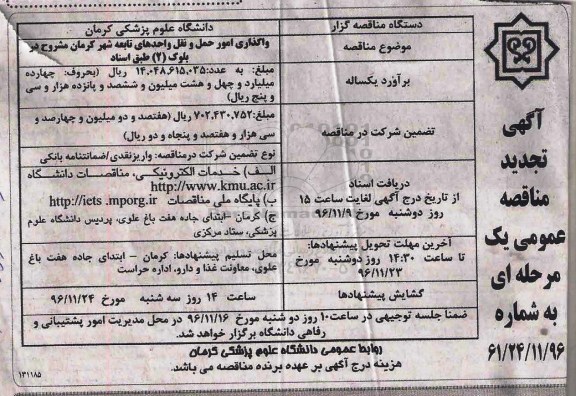 آگهی
تجدید
مناقصه
عمومی یک
مرحله ای
به شماره
۶۱/۲۴/۱۱/۹۶
دستگاه مناقصه گزار
دانشگاه علوم پزشکی کرمان
موضوع مناقصه
واگذاری امور حمل و نقل واحدهای تابعه شهر کرمان مشروح در
بلوک (۲) طبق اسناد
برآورد یکساله
مبلغ: به عدد:۱۴.۰۴۸.۶۱۵.۰۳۵ ریال (بحروف: چهارده
میلیارد و چهل و هشت میلیون و ششصد و پانزده هزار و سی
و پنج ریال)
تضمین شرکت در مناقصه
مبلغ:۷۰۲.۴۳۰.۷۵۲ ریال (هفتصد و دو میلیون و چهارصد و
سی هزار و هفتصد و پنجاه و دو ریال)
نوع تضمین شرکت درمناقصه: واریزنقدی/ضمانتنامه بانکی
دریافت اسناد
از تاریخ درج آگهی لغایت ساعت ۱۵
روز دوشنبه مورخ ۹۶/۱۱/۹
الف) خدمات الکترونیکی، مناقصات دانشگاه
http://www.kmu.ac.ir
ب) پایگاه ملی مناقصات http://iets .mporg.ir
ج) کرمان –ابتدای جاده هفت باغ علوی، پردیس دانشگاه علوم
پزشکی، ستاد مرکزی
آخرین مهلت تحویل پیشنهادها:
تا ساعت ۱۴:۳۰ روز دوشنبه مورخ
۹۶/۱۱/۲۳
محل تسلیم پیشنهادها: کرمان – ابتدای جاده هفت باغ
علوی، معاونت غذا و دارو، اداره حراست
گشایش پیشنهادها
ساعت ۱۴ روز سه شنبه مورخ ۹۶/۱۱/۲۴
ضمنا جلسه توجیهی در ساعت۱۰ روز دو شنبه مورخ ۹۶/۱۱/۱۶ در محل مدیریت امور پشتیبانی و
رفاهی دانشگاه برگزار خواهد شد.
روابط عمومی دانشگاه علوم پزشکی کرمان
هزینه درج آگهی بر عهده برنده مناقصه می باشد.
۱۳۱۱۸۵